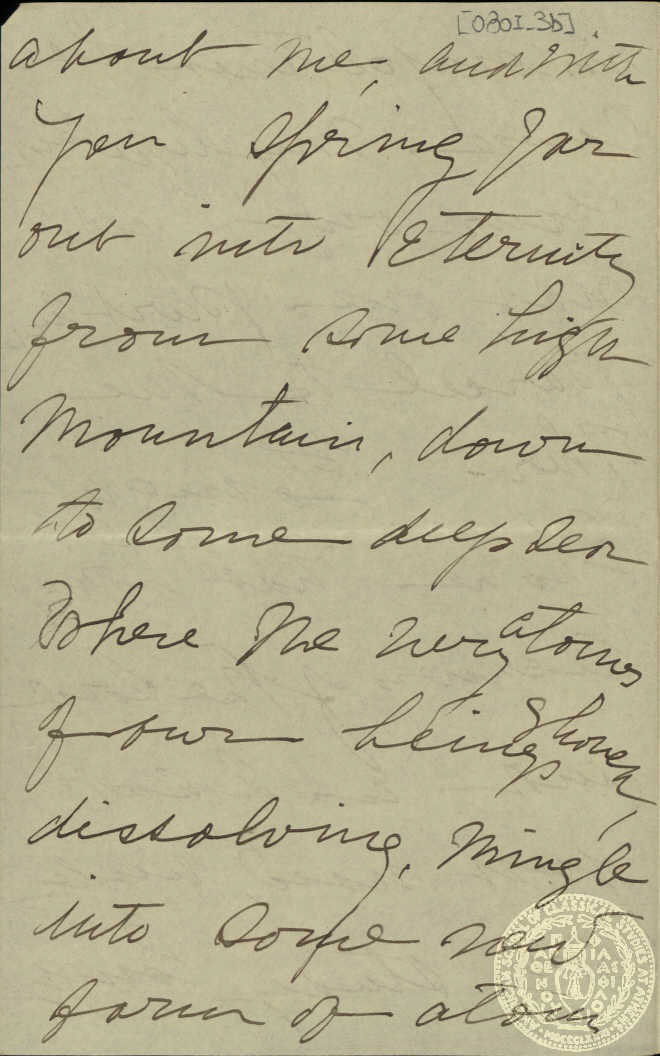 [0301-3b]
about me, and with
you spring far
out into Eternity
from some high
Mountain, down
to some deep sea
Where the very atomes
of our beings should,
dissolving, mingle
into some new
form of atom